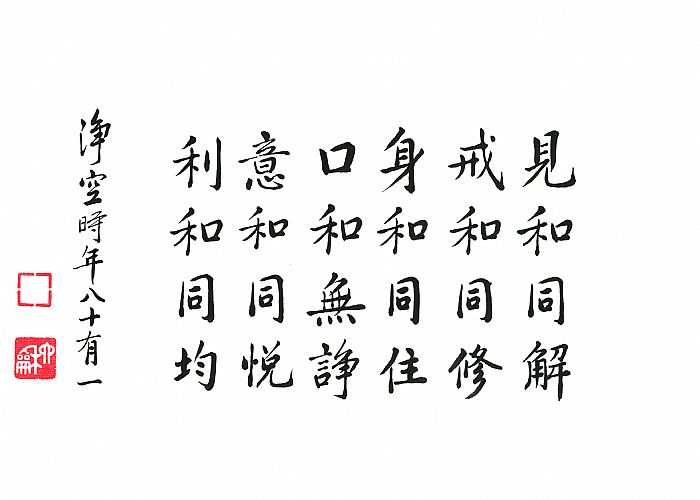 見和同解
戒和同修
身和同住
口和無諍
意和同悦
利和同均
淨空時年八十有一